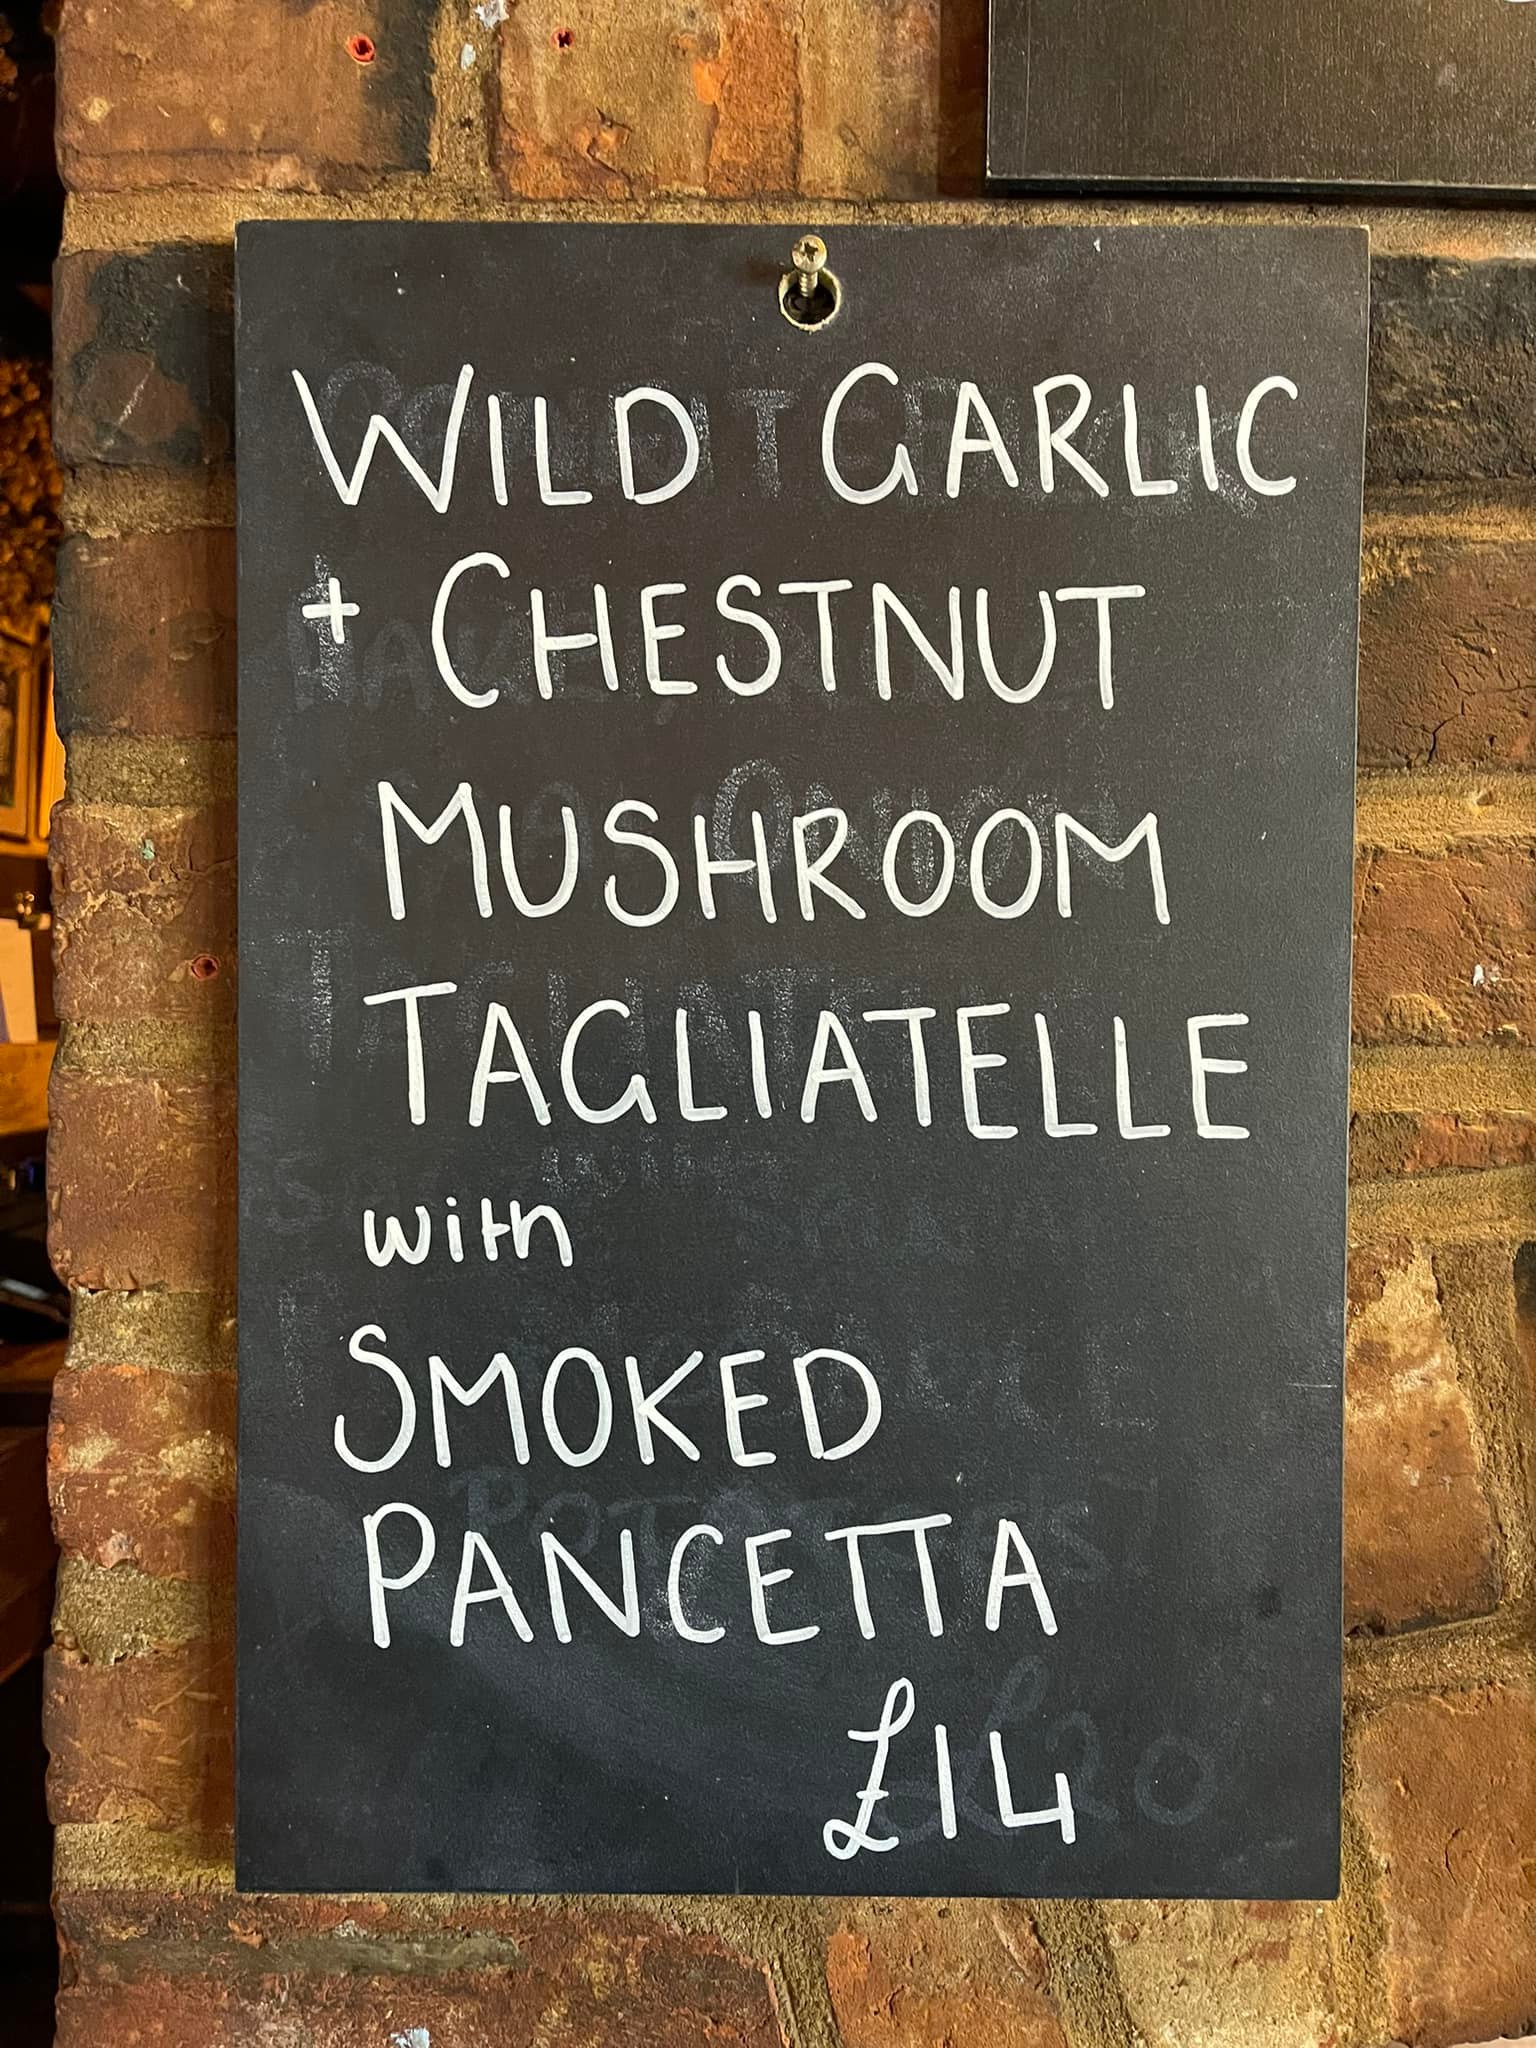 WILD GARLIC
+ CHESTNUT
MUSHROOM
TAGLIATELLE
with
SMOKED
PANCETTA
£14